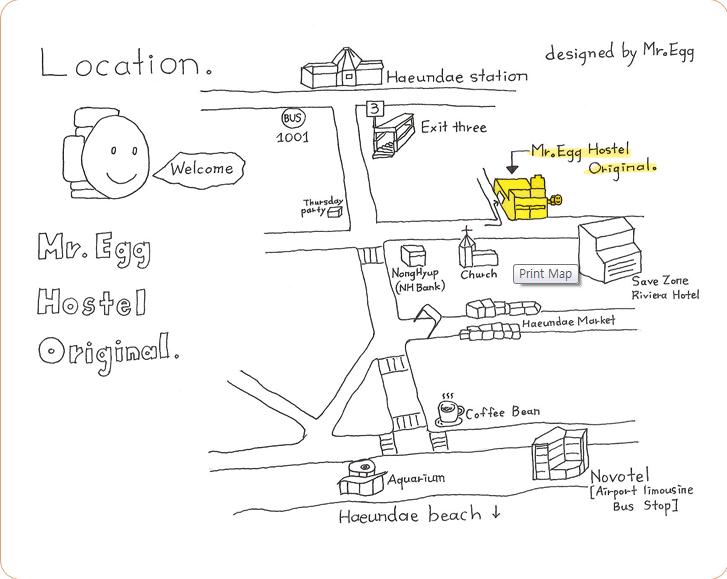 Location.
designed by Mr.Egg
Haeundae station
3
BUS
1001
Exit three
Welcome
Mr.Egg Hostel
Original.
Thursday
party
Mr. Egg
Hostel
Original.
NongHyup
(NH Bank)
Church
Print Map
Save Zone
Riviera Hotel
Haeundae Market
Coffee Bean
Aquarium
Novotel
[Airport limousine
Bus Stop]
Haeundae beach ↓